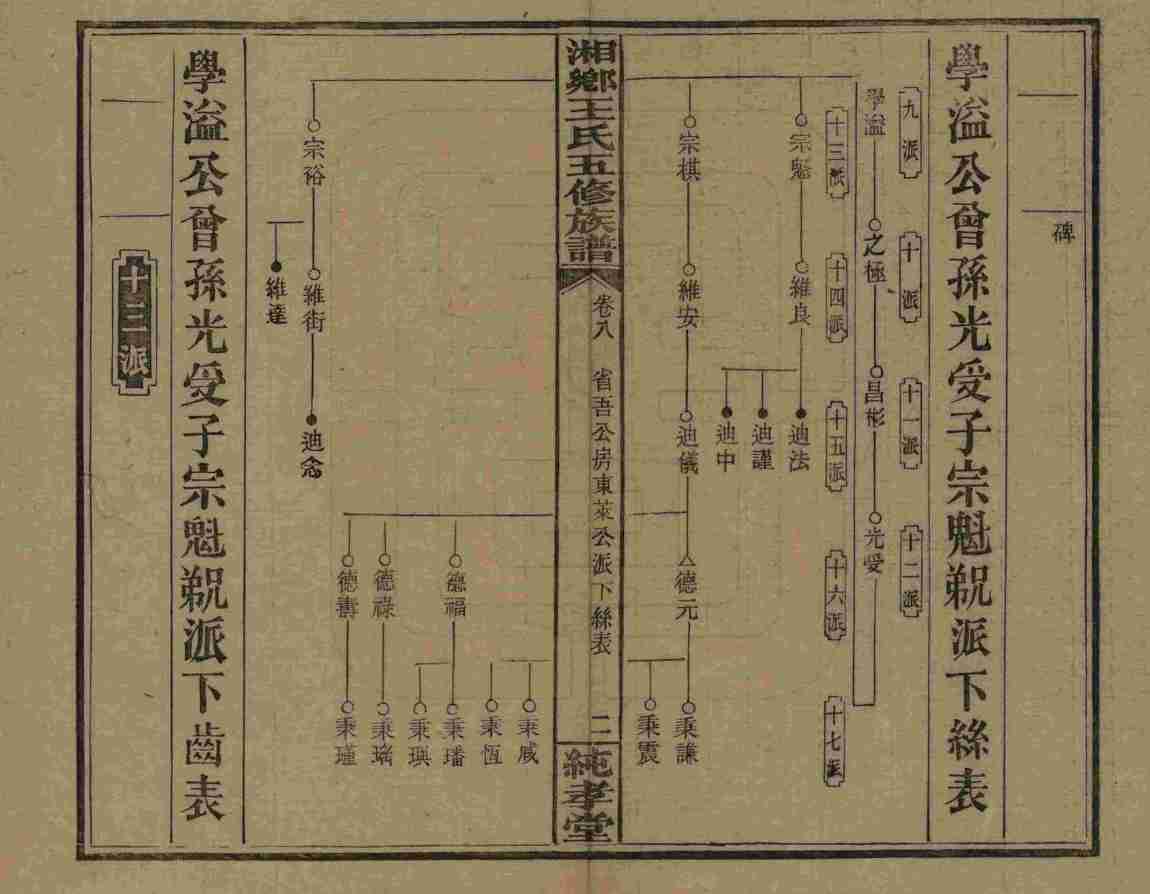 碑
學溢公曾孫光受子宗魁䚱派下絲表
九派
十派
十一派
十二派
學溢
之極
昌彬
光受
十三派
十四派
十五派
十六派
十七派
宗魁
維良
迪法
迪謹
迪中
宗棋
維安
迪儀
德元
秉謙
秉震
湘鄉王氏五修族譜
卷八
省吾公房東萊公派下絲表
二
純孝堂
秉咸
秉恆
德福
秉璠
秉璵
德祿
秉璃
德壽
秉瑾
宗裕
維街
迪念
維達
學溢公曾孫光受子宗魁䚱派下齒表
十三派